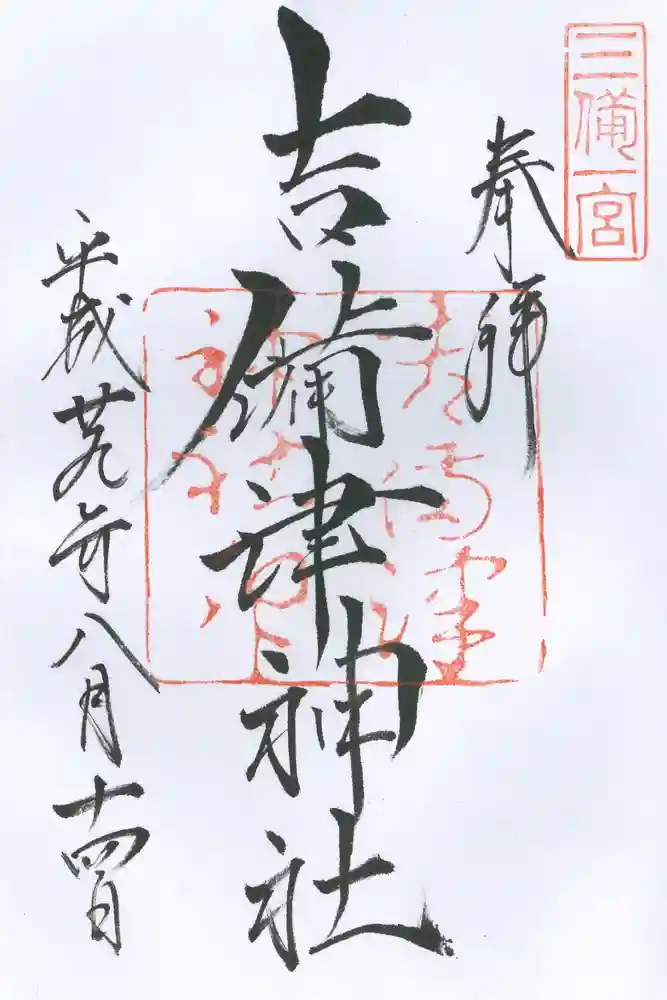 三備一宮
奉拝
吉備津神社
平成廿九年八月十四日